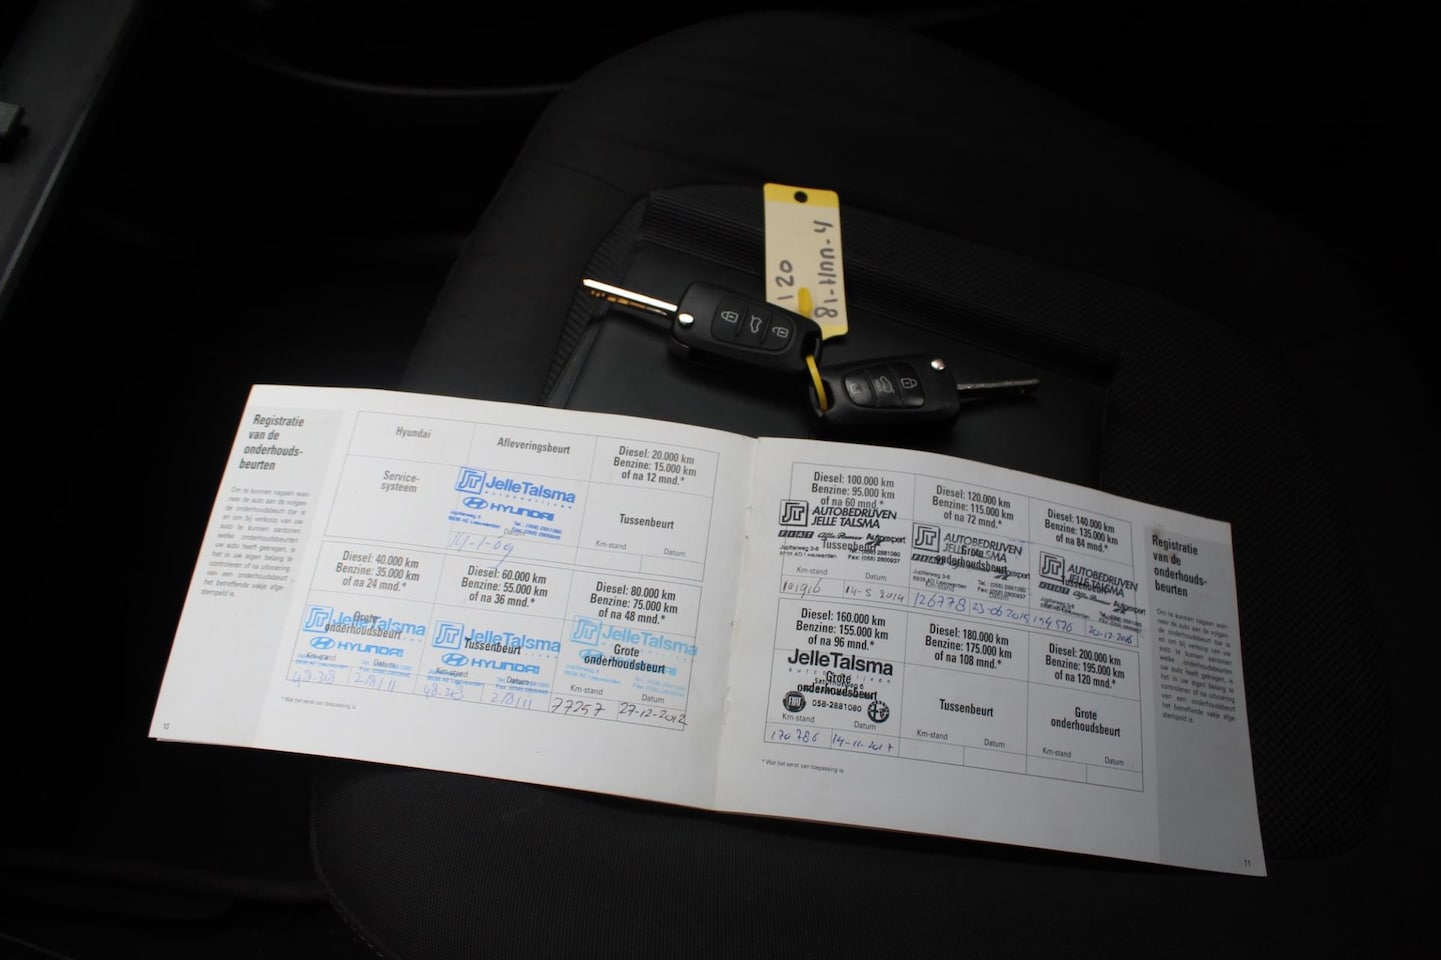 I20
81-HNN-4
Registratie
van de
onderhouds-
beurten
Om te kunnen nagaan wan-
neer de auto aan de volgen-
de onderhoudsbeurt toe is
en om bij verkoop van uw
auto te kunnen aantonen
welke onderhoudsbeurten
uw auto heeft gekregen, is
het in uw eigen belang te
controleren of na uitvoering
van een onderhoudsbeurt
het betreffende vakje afge-
stempeld is.
Hyundai
Service-
systeem
Afleveringsbeurt
JT JelleTalsma
HYUNDAI
14-1-09
Diesel: 20.000 km
Benzine: 15.000 km
of na 12 mnd.*
Tussenbeurt
Km-stand Datum
Diesel: 40.000 km
Benzine: 35.000 km
of na 24 mnd.*
Grote
onderhoudsbeurt
JT JelleTalsma
HYUNDAI
Km-stand Datum
Diesel: 60.000 km
Benzine: 55.000 km
of na 36 mnd.*
JT JelleTalsma
Tussenbeurt
HYUNDAI
Km-stand Datum
Diesel: 80.000 km
Benzine: 75.000 km
of na 48 mnd.*
JT JelleTalsma
Grote
onderhoudsbeurt
Km-stand Datum
77257 27-12-2012
* Wat het eerst van toepassing is.
10
Diesel: 100.000 km
Benzine: 95.000 km
of na 60 mnd.*
JT AUTOBEDRIJVEN
JELLE TALSMA
Tussenbeurt
FIAT Alfa Romeo
Km-stand Datum
101916 14-5-2014
Diesel: 120.000 km
Benzine: 115.000 km
of na 72 mnd.*
JT AUTOBEDRIJVEN
JELLE TALSMA
Grote
onderhoudsbeurt
126778 23-06-2015
Diesel: 140.000 km
Benzine: 135.000 km
of na 84 mnd.*
JT AUTOBEDRIJVEN
JELLE TALSMA
Tussenbeurt
20-12-2016
Diesel: 160.000 km
Benzine: 155.000 km
of na 96 mnd.*
JelleTalsma
Grote
onderhoudsbeurt
FIAT 058-2881080
Km-stand Datum
170786 14-11-2017
Diesel: 180.000 km
Benzine: 175.000 km
of na 108 mnd.*
Tussenbeurt
Km-stand Datum
Diesel: 200.000 km
Benzine: 195.000 km
of na 120 mnd.*
Grote
onderhoudsbeurt
Km-stand Datum
* Wat het eerst van toepassing is.
Registratie
van de
onderhouds-
beurten
Om te kunnen nagaan wan-
neer de auto aan de volgen-
de onderhoudsbeurt toe is
en om bij verkoop van uw
auto te kunnen aantonen
welke onderhoudsbeurten
uw auto heeft gekregen, is
het in uw eigen belang te
controleren of na uitvoering
van een onderhoudsbeurt
het betreffende vakje afge-
stempeld is.
11